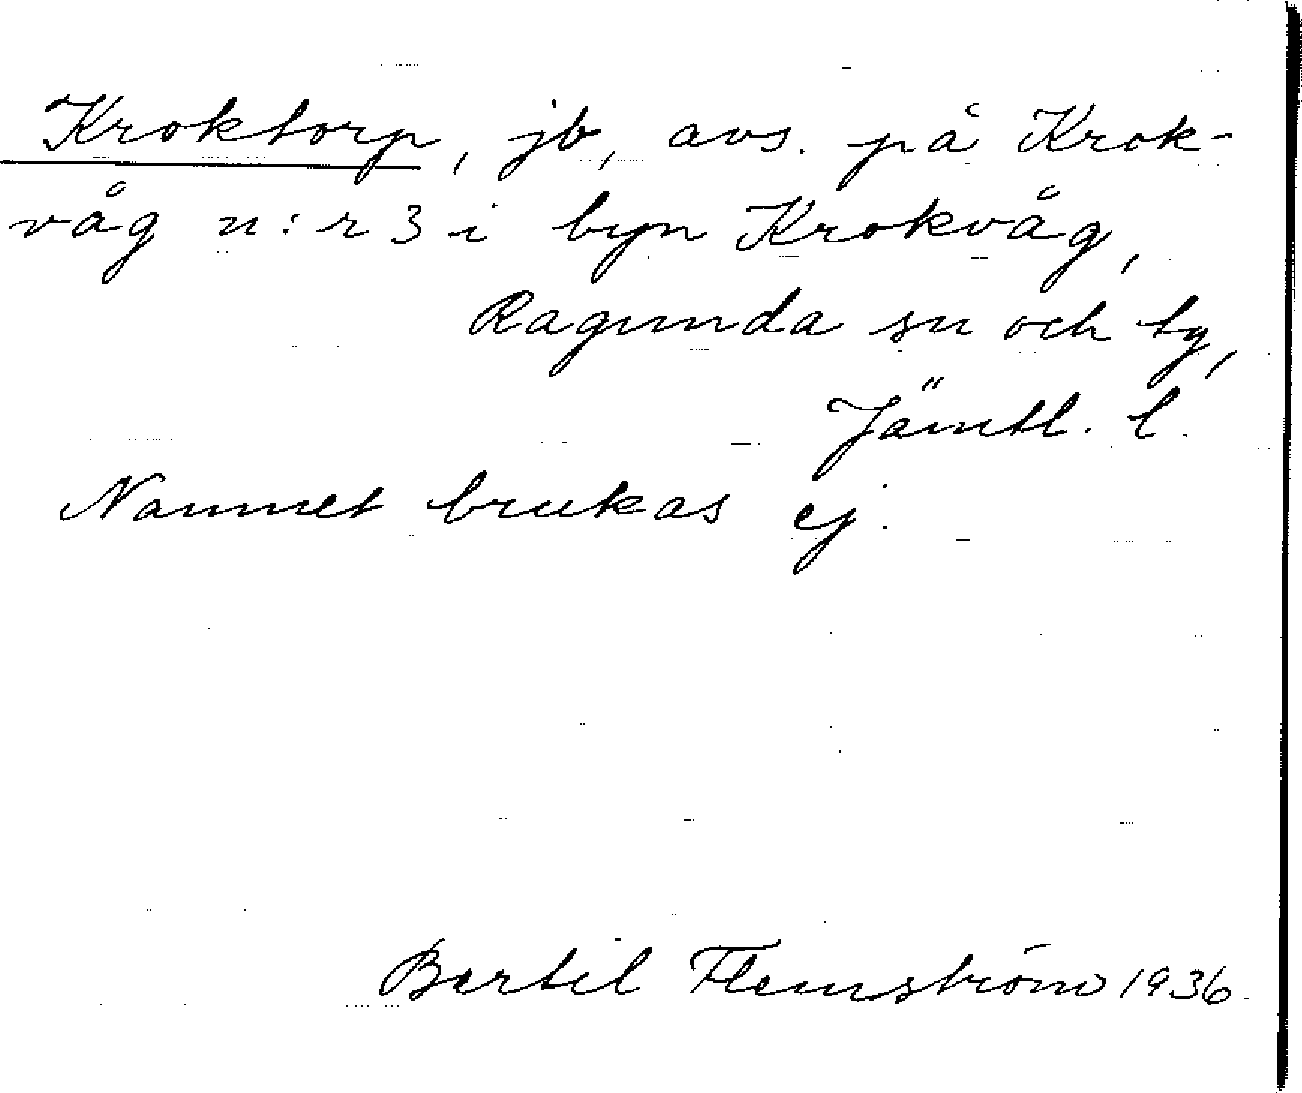 Kroktorp, jb, avs. på Krok-
våg n:r 3 i byn Krokvåg,
Ragunda sn och tg,
Jämtl. l.
Namnet brukas ej.
Bertil Flemström 1936